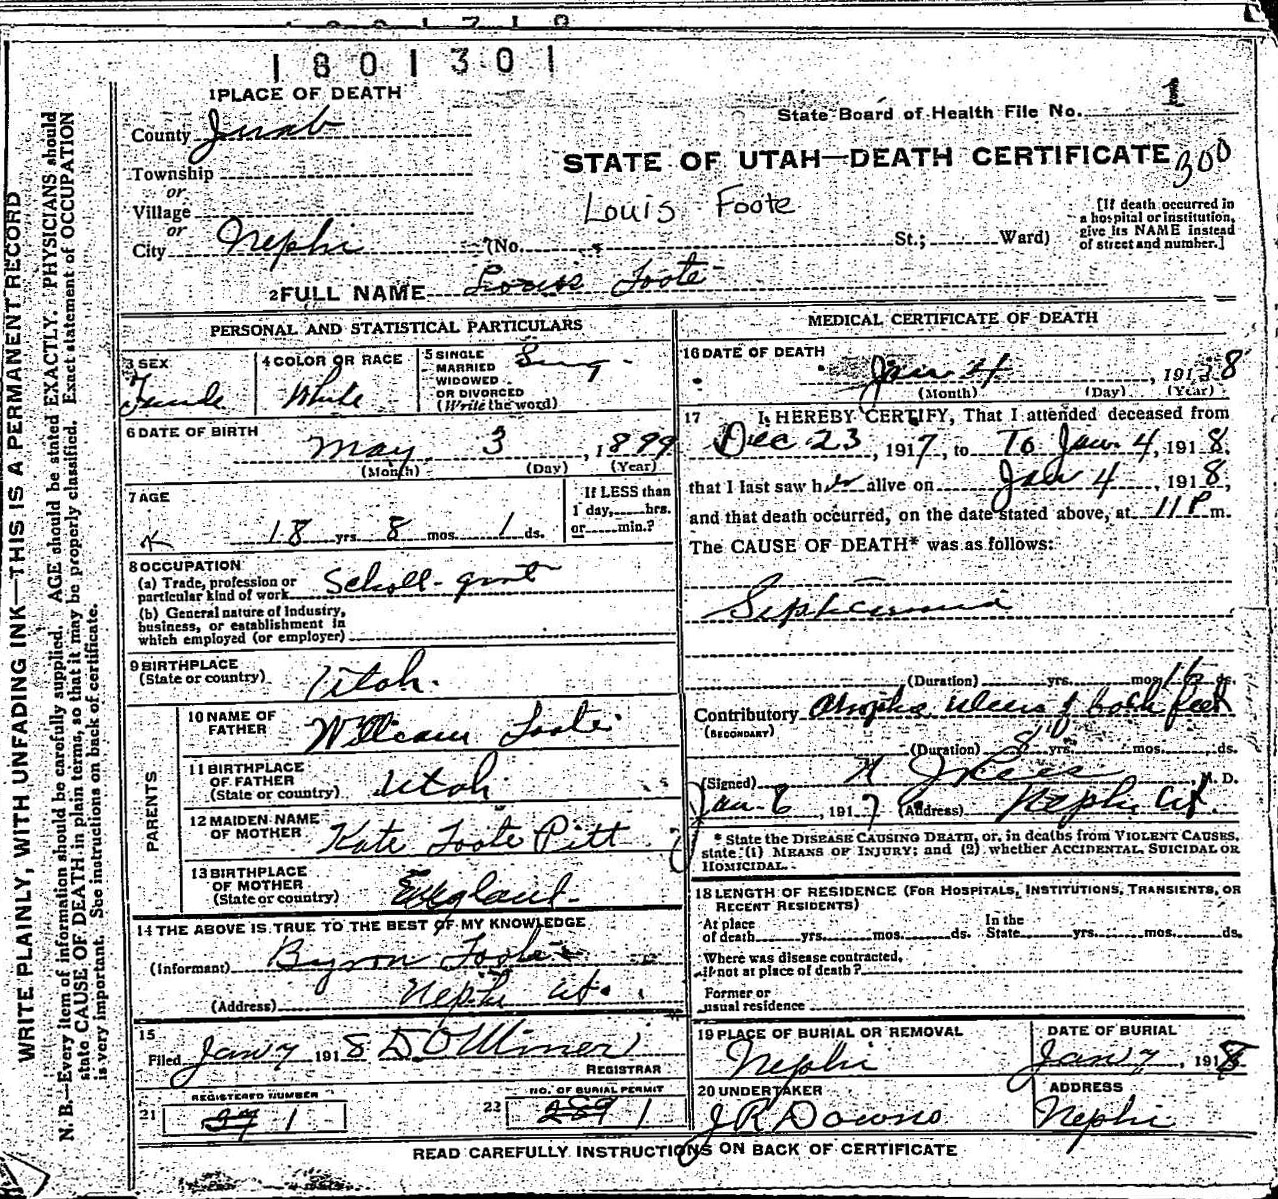 1801301
1 PLACE OF DEATH
State Board of Health File No. 1
County Juab
STATE OF UTAH—DEATH CERTIFICATE
300
Township
or
Village
Louis Foote
[If death occurred in
a hospital or institution,
give its NAME instead
of street and number.]
or
City Nephi (No. St.; Ward)
2 FULL NAME Louis Foote
PERSONAL AND STATISTICAL PARTICULARS
3 SEX
Female
4 COLOR OR RACE
White
5 SINGLE
MARRIED
WIDOWED
OR DIVORCED
(Write the word)
Sing
6 DATE OF BIRTH
May 3, 1899
(Month) (Day) (Year)
7 AGE
18 yrs. 8 mos. 1 ds.
If LESS than
1 day, hrs.
or min.?
8 OCCUPATION
(a) Trade, profession or
particular kind of work
(b) General nature of industry,
business, or establishment in
which employed (or employer)
9 BIRTHPLACE
(State or country) Utah.
PARENTS
10 NAME OF
FATHER William Foote
11 BIRTHPLACE
OF FATHER
(State or country) Utah
12 MAIDEN NAME
OF MOTHER Kate Foote Pitt
13 BIRTHPLACE
OF MOTHER
(State or country) England
14 THE ABOVE IS TRUE TO THE BEST OF MY KNOWLEDGE
(Informant) Byron Foote
(Address) Nephi Ut.
15
Filed Jan 7 1918 D O Miner
REGISTRAR
REGISTERED NUMBER
21 37 1
NO. OF BURIAL PERMIT
22 289 1
MEDICAL CERTIFICATE OF DEATH
16 DATE OF DEATH
Jan 4, 1918
(Month) (Day) (Year)
17 I HEREBY CERTIFY, That I attended deceased from
Dec 23, 1917, to To Jan. 4, 1918.
that I last saw her alive on Jan 4, 1918,
and that death occurred, on the date stated above, at 11 P m.
The CAUSE OF DEATH* was as follows:
Septicemia
(Duration) yrs. mos. 16 ds.
Contributory ulcers of both feet
(SECONDARY)
(Duration) 8 yrs. mos. ds.
(Signed) M. D.
Jan. 6, 1917 (Address) Nephi Ut.
* State the DISEASE CAUSING DEATH, or, in deaths from VIOLENT CAUSES,
state (1) MEANS OF INJURY; and (2) whether ACCIDENTAL, SUICIDAL OR
HOMICIDAL.
18 LENGTH OF RESIDENCE (FOR HOSPITALS, INSTITUTIONS, TRANSIENTS, OR
RECENT RESIDENTS)
At place
of death yrs. mos. ds.
In the
State yrs. mos. ds.
Where was disease contracted,
if not at place of death?
Former or
usual residence
19 PLACE OF BURIAL OR REMOVAL
Nephi
DATE OF BURIAL
Jan 7, 1918
20 UNDERTAKER
J R Downs
ADDRESS
Nephi
READ CAREFULLY INSTRUCTIONS ON BACK OF CERTIFICATE
WRITE PLAINLY, WITH UNFADING INK—THIS IS A PERMANENT RECORD
N. B.—Every item of information should be carefully supplied. AGE should be stated EXACTLY. PHYSICIANS should
state CAUSE OF DEATH in plain terms, so that it may be properly classified. Exact statement of OCCUPATION
is very important. See instructions on back of certificate.